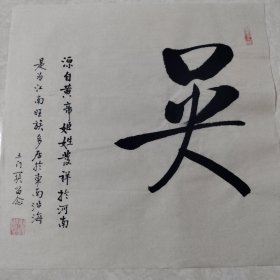 吴
源自黄帝姬姓发祥于河南
是为江南旺族多居于东南沿海